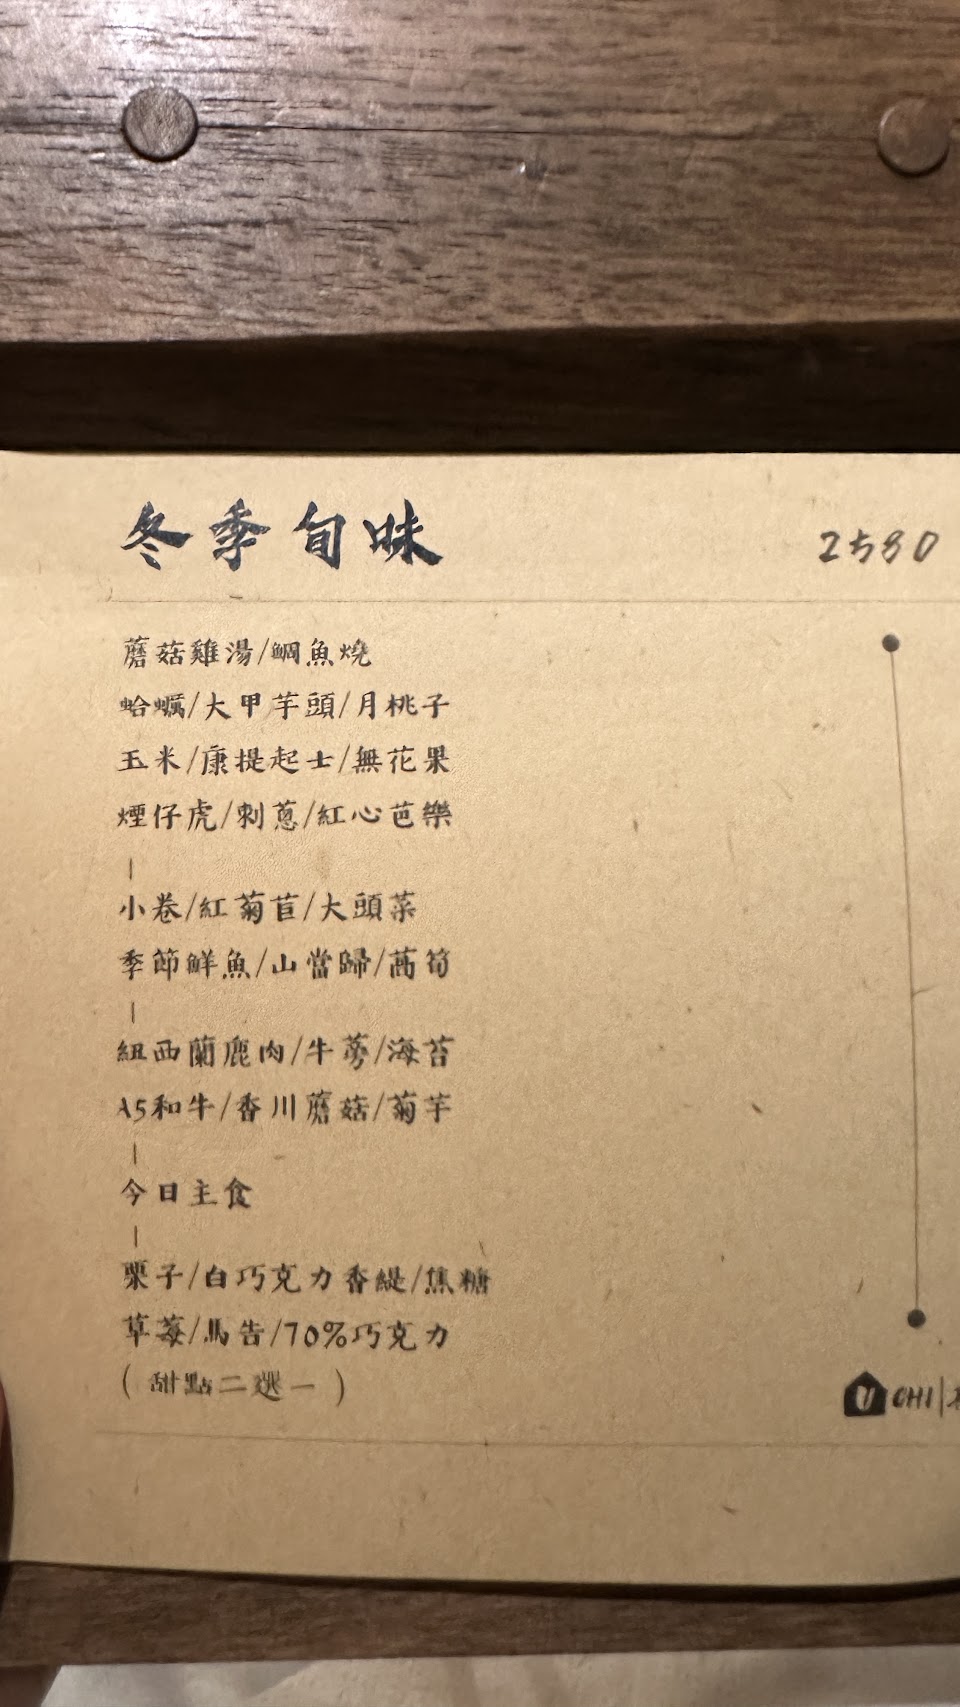 冬季旬味 2580
蘑菇雞湯/鯛魚燒
蛤蠣/大甲芋頭/月桃子
玉米/康提起士/無花果
煙仔虎/刺蔥/紅心芭樂
小卷/紅菊苣/大頭菜
季節鮮魚/山當歸/萵筍
紐西蘭鹿肉/牛蒡/海苔
A5和牛/香川蘑菇/菊芋
今日主食
栗子/白巧克力香緹/焦糖
草莓/馬告/70%巧克力
(甜點二選一)
U CHI|